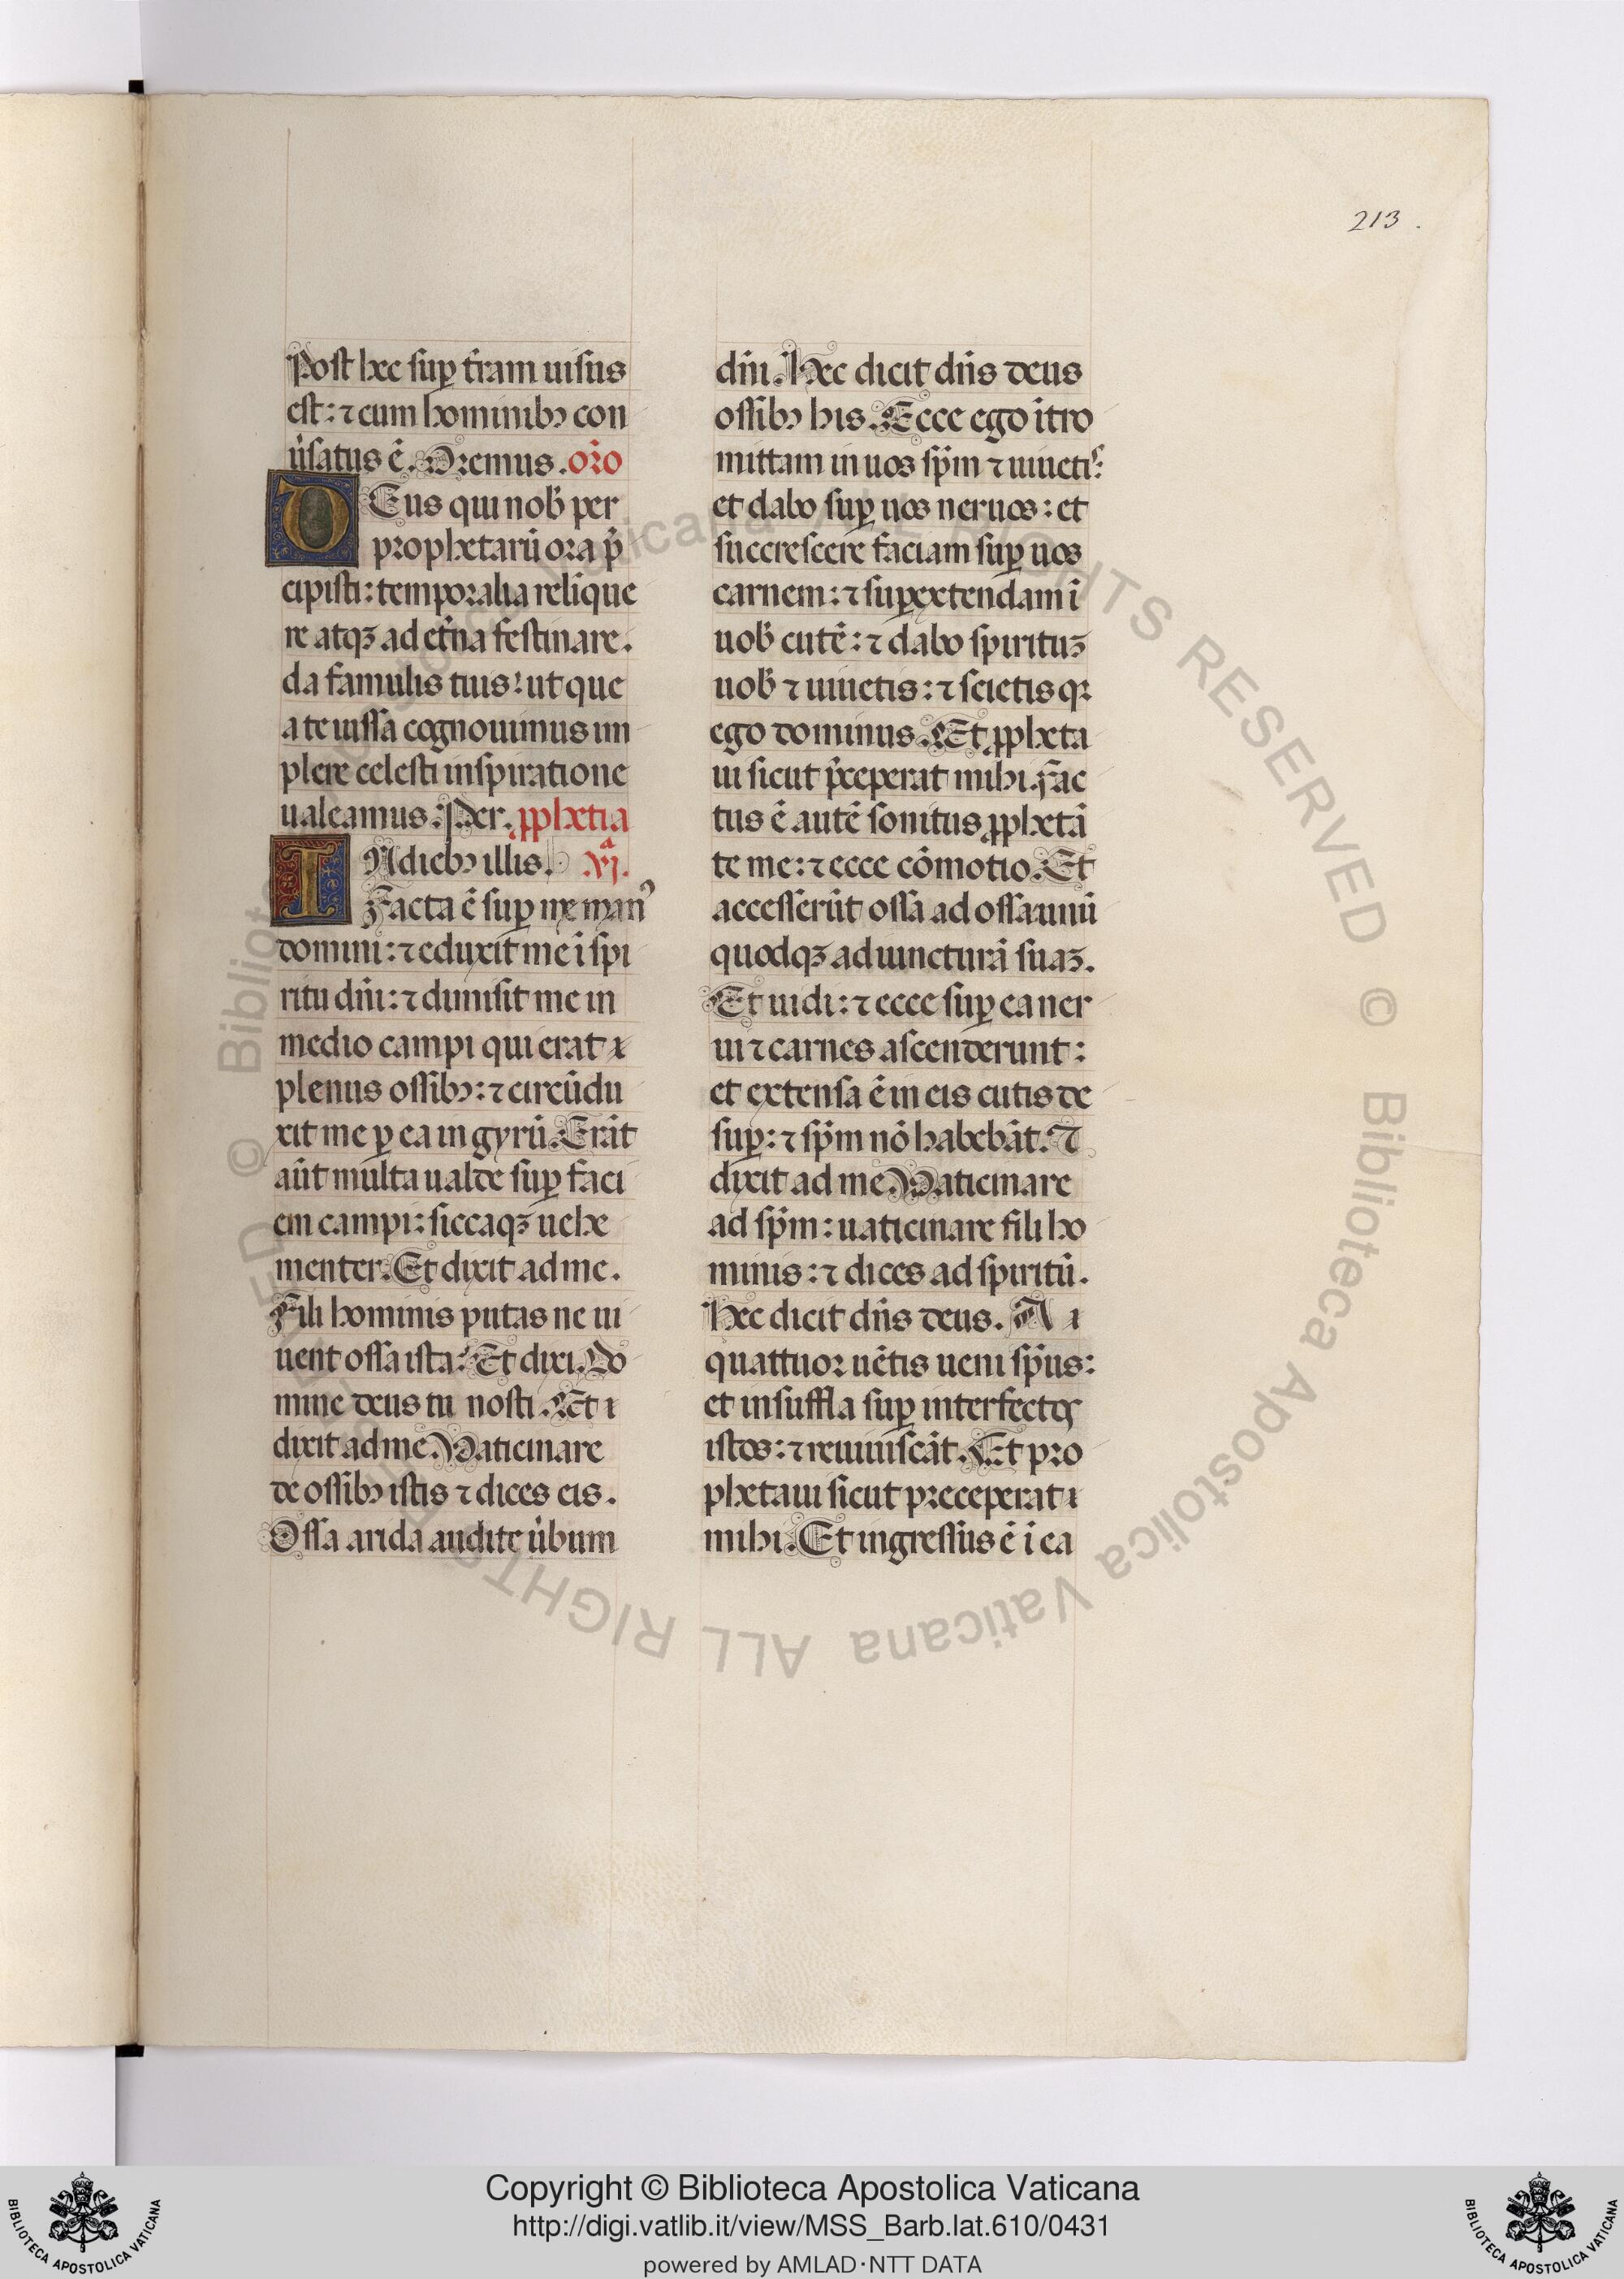 213.
Post hec sup̱ t̄ram uisus
est: ⁊ cum hominibꝫ con
ūsatus ē. Oremus. or̄o
DEus qui nob̄ per
prophetarū ora p̄
cipisti: temporalia relinque
re atqꝫ ad et̄na festinare.
da famulis tuis: ut que
a te iussa cognouimus im
plere celesti inspiratione
ualeamus. Per. ꝓphetia
IN diebꝫ illis. xjª.
Facta ē sup̱ me manꝰ
domini: ⁊ eduxit me ī spi
ritu dn̄i: ⁊ dimisit me in
medio campi qui erat
plenus ossibꝫ: ⁊ circūdu
xit me ꝑ ea in gyrū. Erāt
aūt multa ualde sup̱ faci
em campi: siccaqꝫ uehe
menter. Et dixit ad me.
Fili hominis putas ne ui
uent ossa ista? Et dixi. Do
mine deus tu nosti. Et
dixit ad me. Uaticinare
de ossibꝫ istis ⁊ dices eis.
Ossa arida audite ūbum
dn̄i. Hec dicit dn̄s deus
ossibꝫ his. Ecce ego ītro
mittam in uos sp̄m ⁊ uiuetis:
et dabo sup̱ uos neruos: et
succrescere faciam sup̱ uos
carnem: ⁊ sup̱extendam ī
uob̄ cutē: ⁊ dabo spirituꝫ
uob̄ ⁊ uiuetis: ⁊ scietis qꝛ
ego dominus. Et ꝓpheta
ui sicut p̄ceperat mihi. Fac
tus ē autē sonitus ꝓphetā
te me: ⁊ ecce cōmotio. Et
accesserūt ossa ad ossa: unū
quodqꝫ ad iuncturā suaꝫ.
Et uidi: ⁊ ecce sup̱ ea ner
ui ⁊ carnes ascenderunt:
et extensa ē in eis cutis de
sup̱: ⁊ sp̄m nō habebāt. Et
dixit ad me. Uaticinare
ad sp̄m: uaticinare fili ho
minis: ⁊ dices ad spiritū.
Hec dicit dn̄s deus. A
quattuor uētis ueni sp̄us:
et insuffla sup̱ interfectos
istos: ⁊ reuiuiscāt. Et pro
phetaui sicut preceperat
mihi. Et ingressus ē ī ea
© Biblioteca Apostolica Vaticana ALL RIGHTS RESERVED © Biblioteca Apostolica Vaticana ALL RIGHTS RESERVED
Copyright © Biblioteca Apostolica Vaticana
http://digi.vatlib.it/view/MSS_Barb.lat.610/0431
powered by AMLAD·NTT DATA
BIBLIOTECA APOSTOLICA VATICANA
BIBLIOTECA APOSTOLICA VATICANA